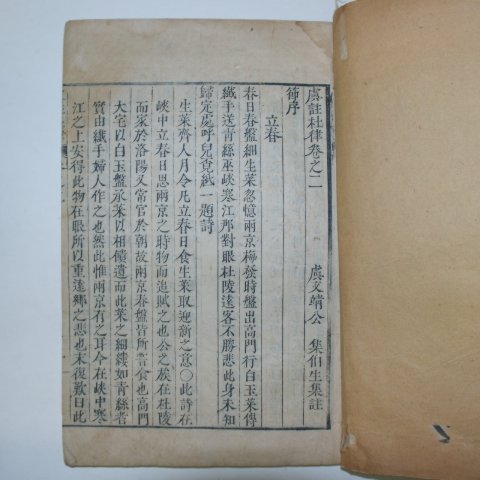 虞註杜律卷之二　虞文靖公　集伯生集註
節序
立春
春日春盤細生菜忽憶兩京梅發時盤出高門行白玉菜傳
纖手送青絲巫峽寒江那對眼杜陵遠客不勝悲此身未知
歸定處呼兒覓紙一題詩
生菜齊人月令凡立春日食生菜取迎新之意〇此詩在
峽中立春日思兩京之時物而追賦之也公之族在杜陵
而家於洛陽又嘗官於朝故兩京春盤皆所嘗食也高門
大宅以白玉盤承菜以相饋遺而此菜之細縷如青絲者
實由纖手婦人作之也然此惟兩京有之耳今在峽中寒
江之上安得此物在眼所以重遠鄉之悲也末復歎曰此